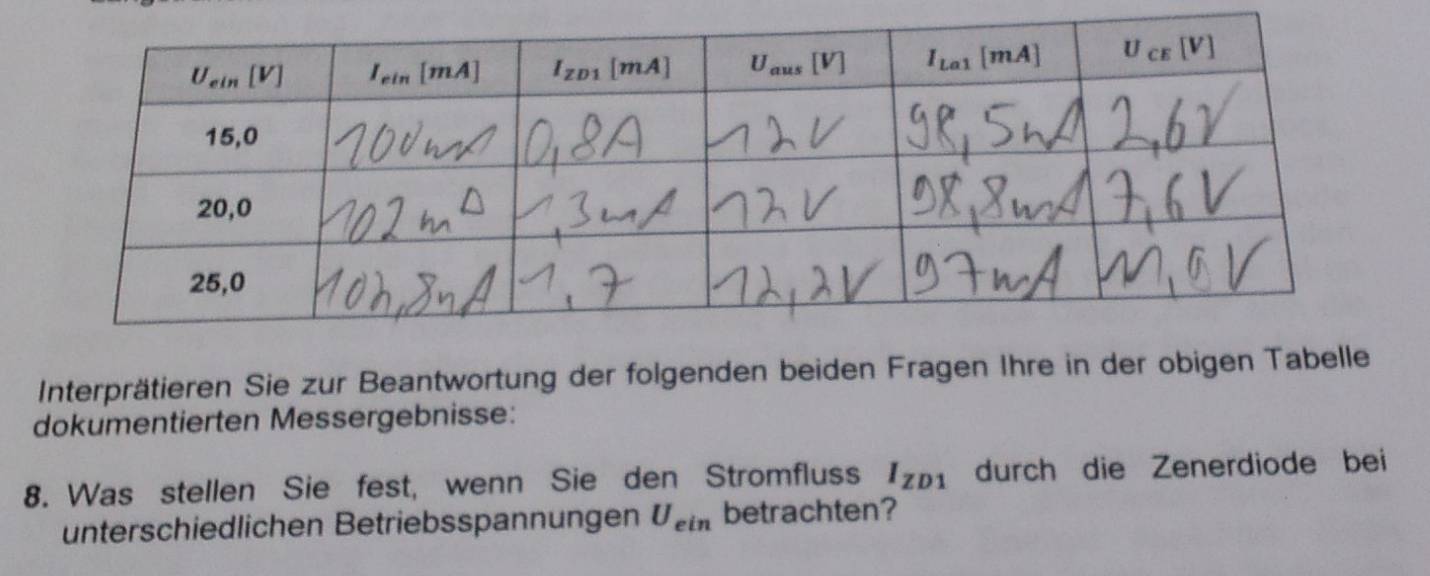 U ein [V] I ein [mA] I ZD1 [mA] U aus [V] I La1 [mA] U CE [V]
15,0 100mA 0,8A 12V 98,5mA 2,6V
20,0 102mA 1,3mA 12V 98,8mA 7,6V
25,0 102,8mA 1,7 12,2V 97mA V
Interprätieren Sie zur Beantwortung der folgenden beiden Fragen Ihre in der obigen Tabelle
dokumentierten Messergebnisse:
8. Was stellen Sie fest, wenn Sie den Stromfluss I ZD1 durch die Zenerdiode bei
unterschiedlichen Betriebsspannungen U ein betrachten?